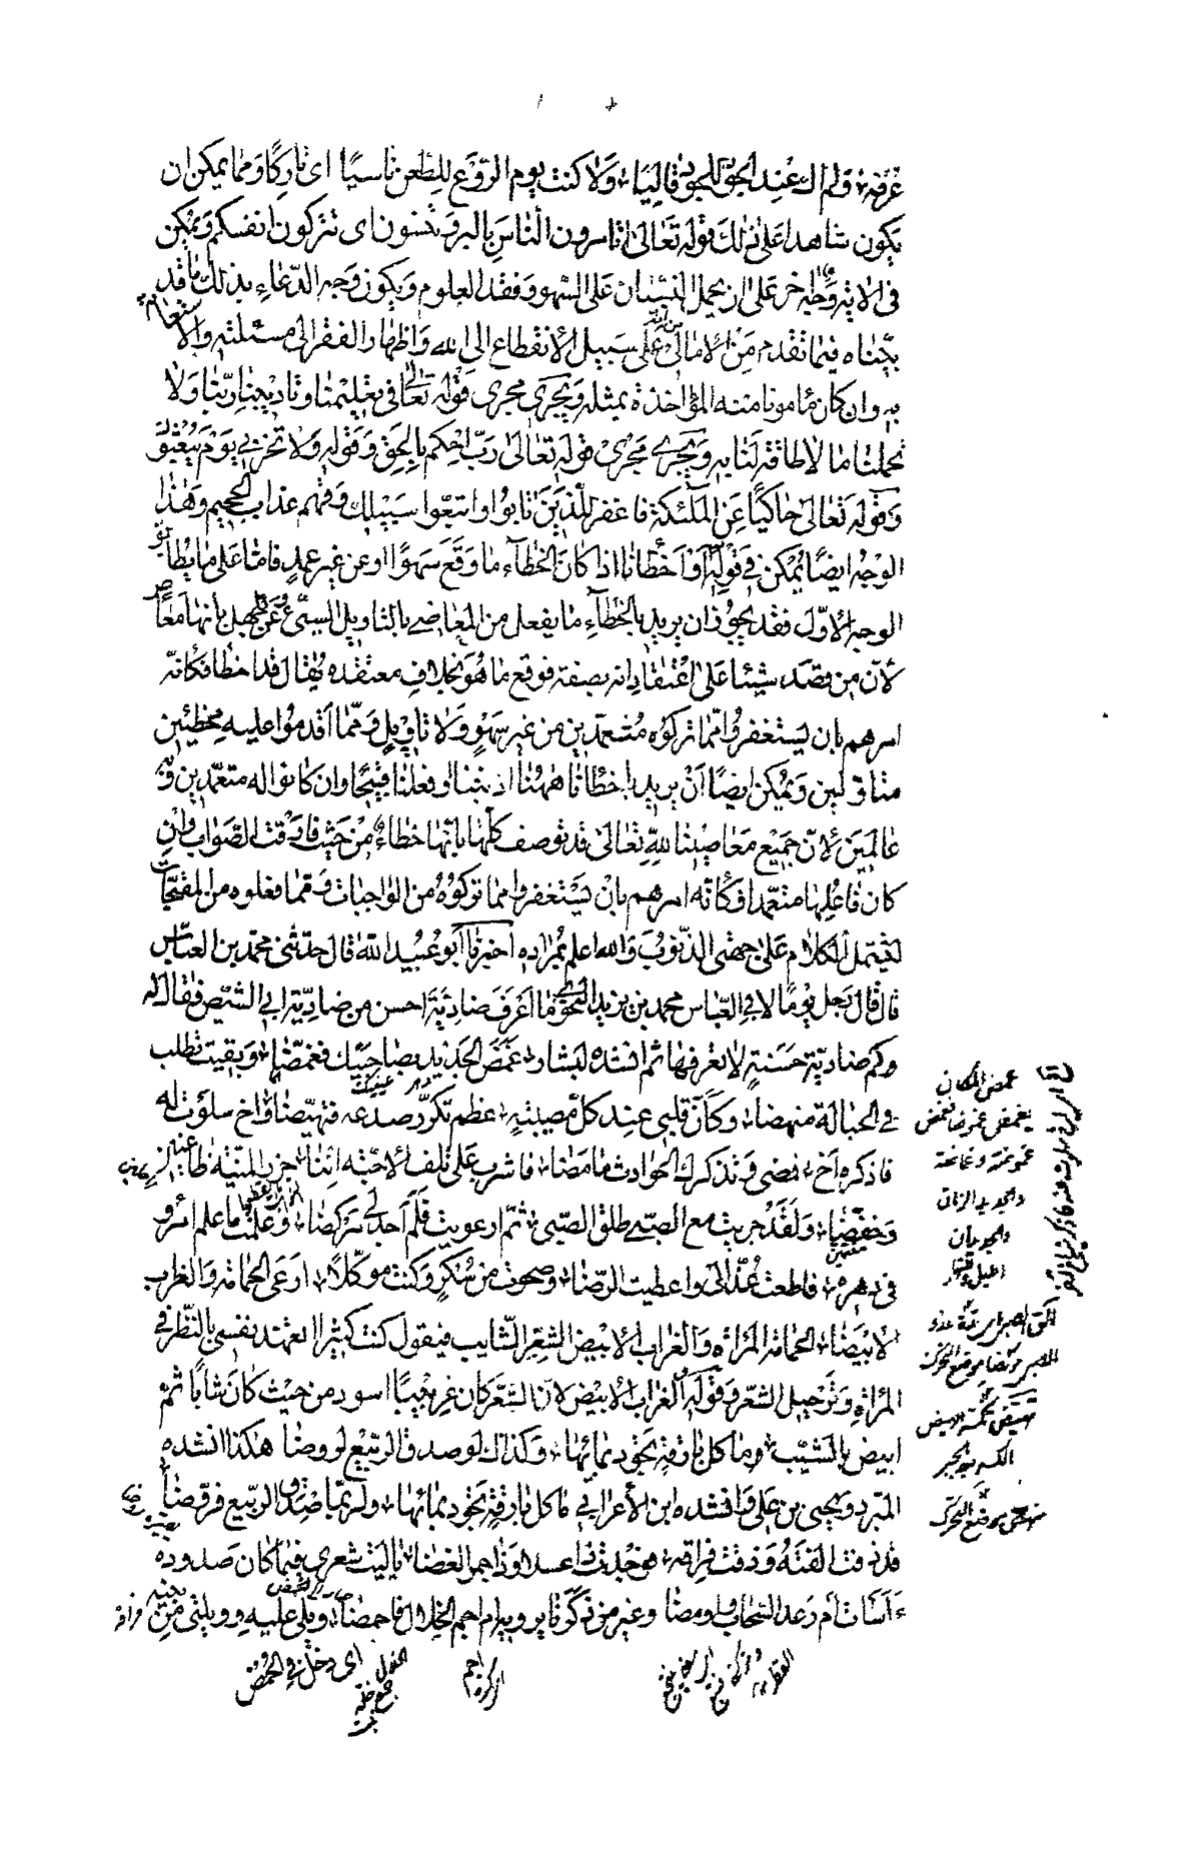 عرضه ولم اك عند الجود للجود قاليا ولا كنت يوم الروع للطعن ناسيا اى تاركا ومما يمكن ان
يكون شاهدا على ذلك قوله تعالى اتامرون الناس بالبر وتنسون اى تتركون انفسكم ويمكن
فى الاية وجه اخر على ان يحمل النسيان على السهو وفقد العلوم ويكون وجه الدعاء بذلك ما قد
بيناه فيما تقدم من الامالى على سبيل الانقطاع الى الله واظهار الفقر الى مسئلته والاستعانة
به وان كان مامونا منه المؤاخذة بمثله ويجرى مجرى قوله تعالى فى تعليمنا وتاديبنا ربنا ولا
تحملنا ما لا طاقة لنا به ويجرى مجرى قوله تعالى رب احكم بالحق وقوله ولا تخزنى يوم يبعثون
وقوله تعالى حاكيا عن الملئكة فاغفر للذين تابوا واتبعوا سبيلك وقهم عذاب الجحيم وهذا
الوجه ايضا يمكن فى قوله او اخطانا اذا كان الخطاء ما وقع سهوا او عن غير عمد فاما على ما يطابق
الوجه الاول فقد يجوز ان يريد بالخطاء ما يفعل من المعاصى بالتاويل السيئ وعن جهل بانها معاص
لان من قصد شيئا على اعتقاد انه بصفة فوقع ما هو بخلاف معتقده يقال قد اخطا فكانه
امرهم بان يستغفروا مما تركوه متعمدين من غير سهو ولا تاويل ومما اقدموا عليه مخطئين
متاولين ويمكن ايضا ان يريد باخطانا ههنا اذنبنا او فعلنا قبيحا وان كانوا له متعمدين وبه
عالمين لان جميع معاصينا لله تعالى قد توصف كلها بانها خطاء من حيث فارقت الصواب وان
كان فاعلها متعمدا فكانه امرهم بان يستغفروا مما تركوه من الواجبات ومما فعلوه من المقبحات
ليشتمل الكلام على جهتى الذنوب والله اعلم بمراده اخبرنا ابو عبيد الله قال حدثنى محمد بن العباس
قال قال رجل يوما لابى العباس محمد بن يزيد النحوى ما اعرف ضادية احسن من ضادية ابى الشيص فقال له
وكم ضادية حسنة لا تعرفها ثم انشده لبشار غمض الجديد بصاحبيك فغمضا وبقيت تطلب
فى الحبالة منهضا وكان قلبى عند كل مصيبة عظم تكرر صدعه فتهيضا واخ سلوت له
فاذكره اخ فمضى وتذكرك الحوادث ما مضا فاشرب على تلف الاحبة اننا جزر المنية ظاعنين
وخفضا ولقد جريت مع الصبى طلق الصبى ثم ارعويت فلم اجد لى مركضا وعلمت ما علم امرؤ
فى دهره فاطعت عذالى واعطيت الرضا وصحوت من سكر وكنت موكلا ارعى الحمامة والغراب
الابيضا الحمامة المراة والغراب الابيض الشعر الشايب فيقول كنت كثيرا اتعهد نفسى بالنظر فى
المراة وترجيل الشعر وقوله الغراب الابيض لان الشعر كان غربيبا اسود من حيث كان شابا ثم
ابيض بالشيب وما كل بارقة تجود بمائها وكذاك لو صدق الربيع لروضا هكذا انشده
المبرد ويحيى بن على وانشده ابن الاعرابى ما كل بارقة تجود بمائها ولربما صدق الربيع فروضا
قد ذقت الفته وذقت فراقه فوجدت ذا عسلا وذا جمر الغضا يا ليت شعرى فيما كان صدوده
ءاسات ام رعد السحاب واومضا
غمض المكان
يغمض غموضا
غموضة وغماضة
والجديد الزمان
والجديدان
الليل والنهار
اى دخل فى الحمض